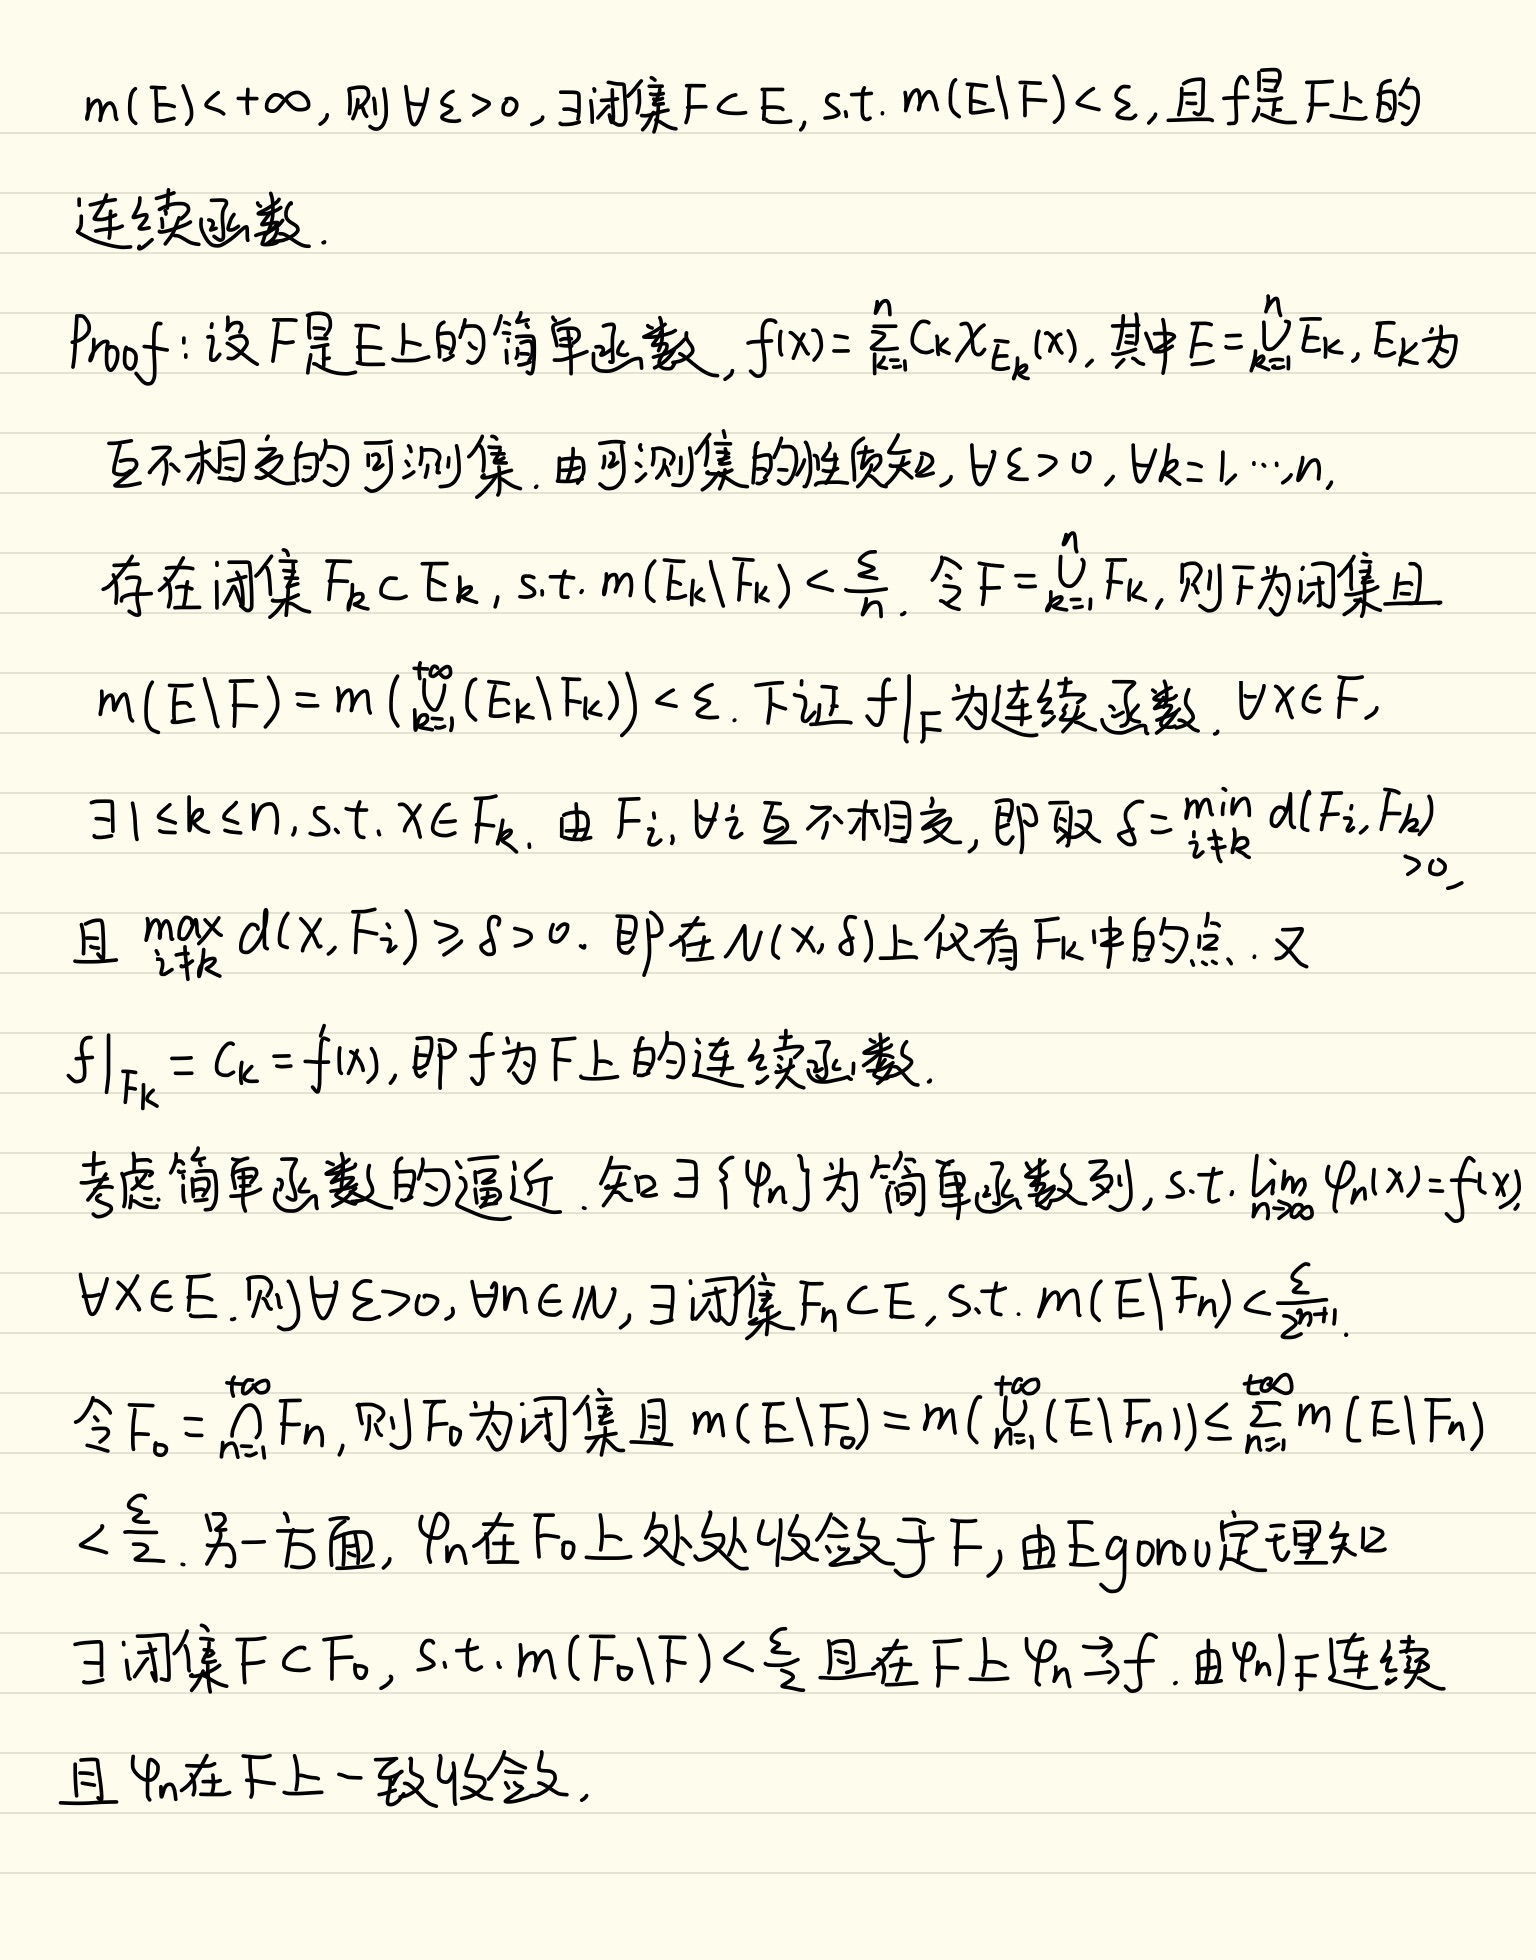 m(E)<+∞, 则∀ε>0, ∃闭集F⊂E, s.t. m(E\F)<ε, 且f是F上的
连续函数.
Proof: 设F是E上的简单函数, f(x)=∑_{k=1}^{n} C_k χ_{E_k}(x), 其中E=∪_{k=1}^{n} E_k, E_k为
互不相交的可测集. 由可测集的性质知, ∀ε>0, ∀k=1,…,n,
存在闭集 F_k⊂E_k, s.t. m(E_k\F_k)<ε/n. 令F=∪_{k=1}^{n} F_k, 则F为闭集且
m(E\F)=m(∪_{k=1}^{+∞}(E_k\F_k))<ε. 下证 f|_F 为连续函数. ∀x∈F,
∃1≤k≤n, s.t. x∈F_k. 由 F_i, ∀i 互不相交, 即取 δ=min_{i≠k} d(F_i, F_k)>0,
且 max_{i≠k} d(x, F_i)≥δ>0. 即在N(x,δ)上仅有F_k中的点. 又
f|_{F_k}=C_k=f(x), 即f为F上的连续函数.
考虑简单函数的逼近. 知∃{φ_n}为简单函数列, s.t. lim_{n→∞} φ_n(x)=f(x),
∀x∈E. 则∀ε>0, ∀n∈N, ∃闭集F_n⊂E, s.t. m(E\F_n)<ε/2^{n+1}.
令F_0=∩_{n=1}^{+∞} F_n, 则F_0为闭集且 m(E\F_0)=m(∪_{n=1}^{+∞}(E\F_n))≤∑_{n=1}^{+∞} m(E\F_n)
<ε/2. 另一方面, φ_n在F_0上处处收敛于F, 由Egorov定理知
∃闭集F⊂F_0, s.t. m(F_0\F)<ε/2 且在F上φ_n⇉f. 由φ_n|_F连续
且φ_n在F上一致收敛.